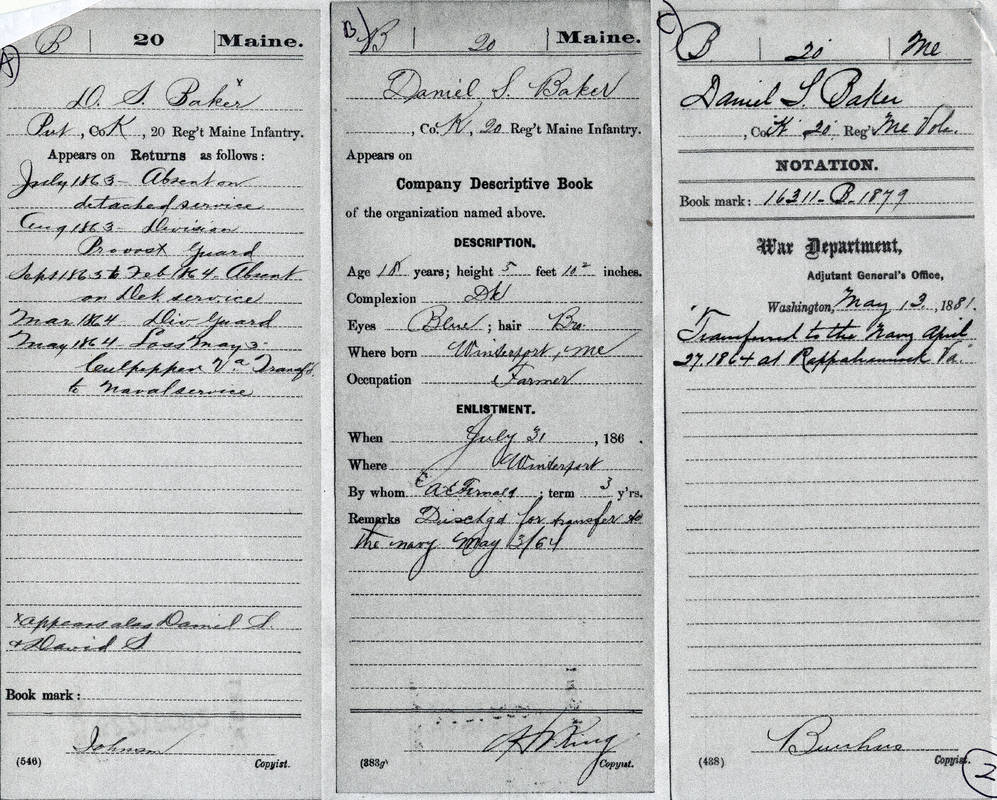 A
B | 20 | Maine.
D. S. Baker x
Pvt, Co. K, 20 Reg't Maine Infantry.
Appears on Returns as follows:
July 1863 - Absent on
detached service
Aug 1863 - Division
Provost Guard
Sept 1863 to Feb 1864. Absent
on Det. service
Mar. 1864 Div Guard
May 1864 Loss May 3-
Culpepper Va Transf.
to Naval service
x appears also Daniel S.
& David S
Book mark:
Johnson
(546) Copyist.
B
B | 20 | Maine.
Daniel S. Baker
, Co. K, 20 Reg't Maine Infantry.
Appears on
Company Descriptive Book
of the organization named above.
DESCRIPTION.
Age 18 years; height 5 feet 10 2 inches.
Complexion Dk
Eyes Blue; hair Bro.
Where born Winterport, Me
Occupation Farmer
ENLISTMENT.
When July 31, 186 .
Where Winterport
By whom Fernald; term 3 y'rs.
Remarks Dischgd for transfer to
the navy May 3/64
Copyist.
(383g)
C
B | 20 | Me
Daniel S. Baker
, Co. K 20 Reg't Me Vols.
NOTATION.
Book mark: 16311-B-1879
War Department,
Adjutant General's Office,
Washington, May 13, 1881.
"Transferred to the Navy April
27, 1864 at Rappahannock Va."
(438) Copyist.
2